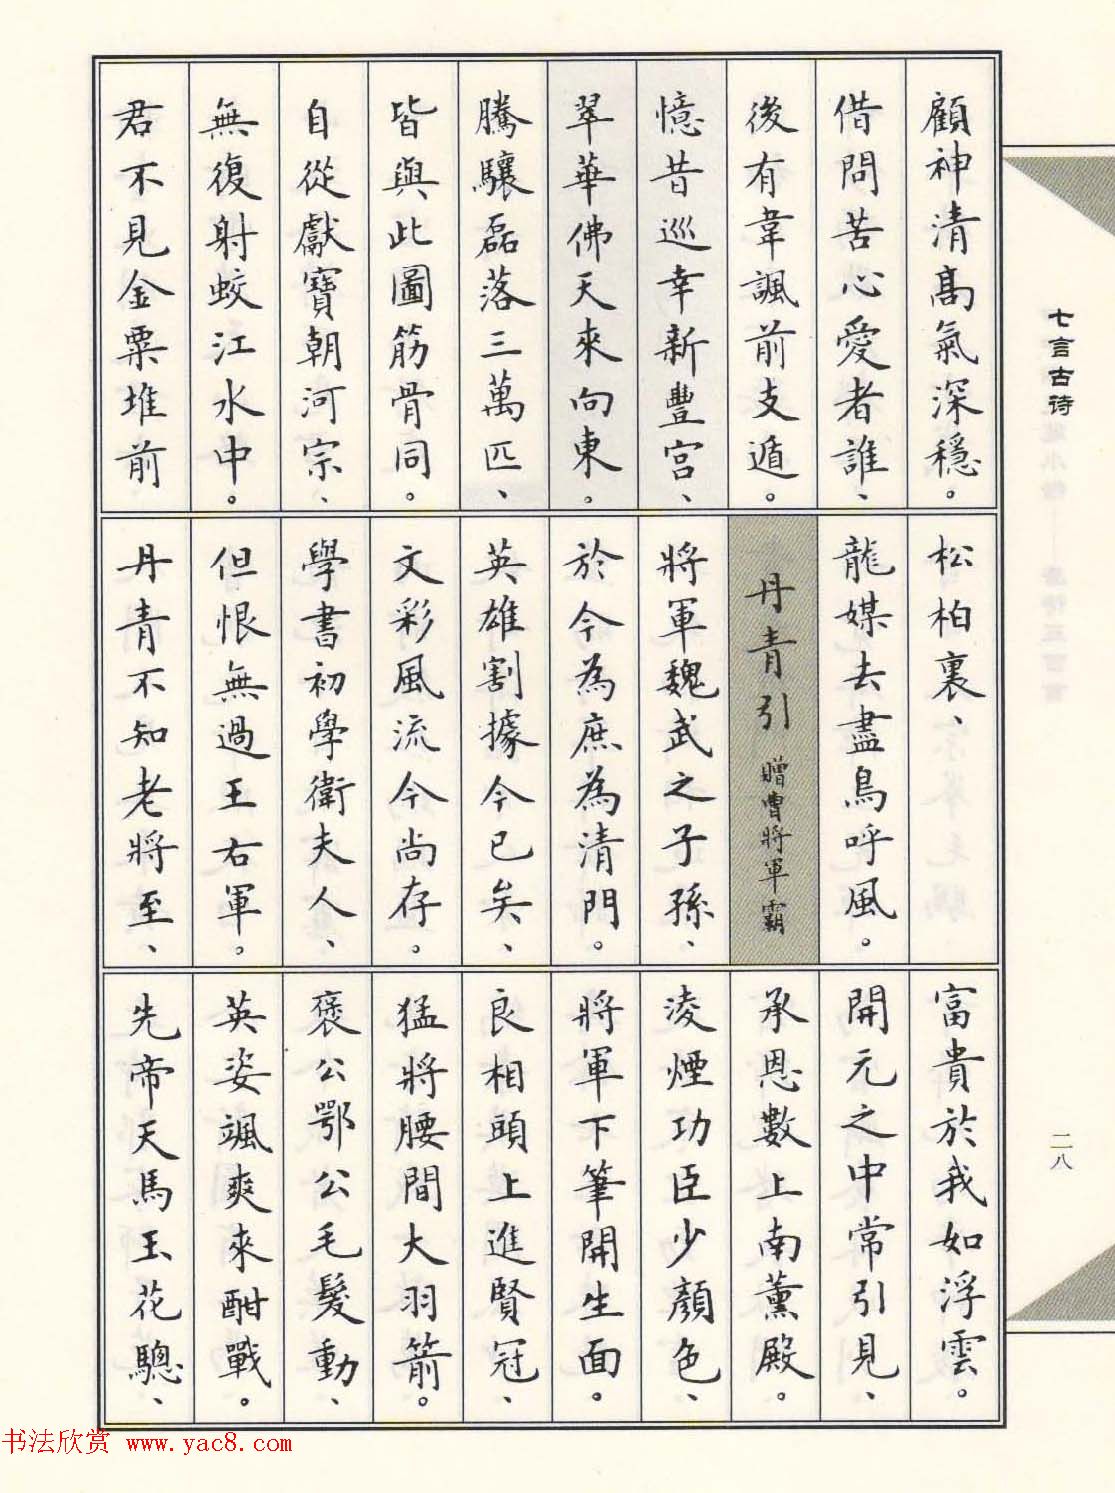 顧神清高氣深穩。
借問苦心愛者誰、
後有韋諷前支遁。
憶昔巡幸新豐宫、
翠華佛天來向東。
騰驤磊落三萬匹、
皆與此圖筋骨同。
自從獻寶朝河宗、
無復射蛟江水中。
君不見金粟堆前
松柏裏、
龍媒去盡鳥呼風。
丹青引 贈曹將軍霸
將軍魏武之子孫、
於今為庶為清門。
英雄割據今已矣、
文彩風流今尚存。
學書初學衛夫人、
但恨無過王右軍。
丹青不知老將至、
富貴於我如浮雲。
開元之中常引見、
承恩數上南薰殿。
淩煙功臣少顏色、
將軍下筆開生面。
良相頭上進賢冠、
猛將腰間大羽箭。
褒公鄂公毛髮動、
英姿颯爽來酣戰。
先帝天馬玉花驄、
七言古诗
二八
书法欣赏 www.yac8.com